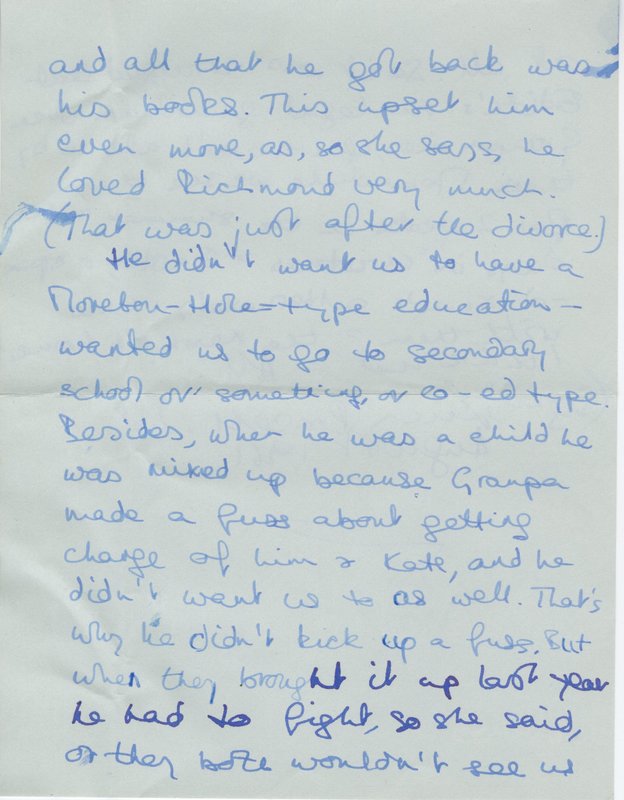 and all that he got back was
his books. This upset him
even more, as, so she says, he
loved Richmond very much.
(That was just after the divorce.)
He didn't want us to have a
Moreton-Hole-type education -
wanted us to go to secondary
school or something, or co-ed type.
Besides, when he was a child he
was mixed up because Granpa
made a fuss about getting
charge of him & Kate, and he
didn't want us to as well. That's
why he didn't kick up a fuss. But
when they brought it up last year
he had to fight, so she said,
or they both wouldn't see us